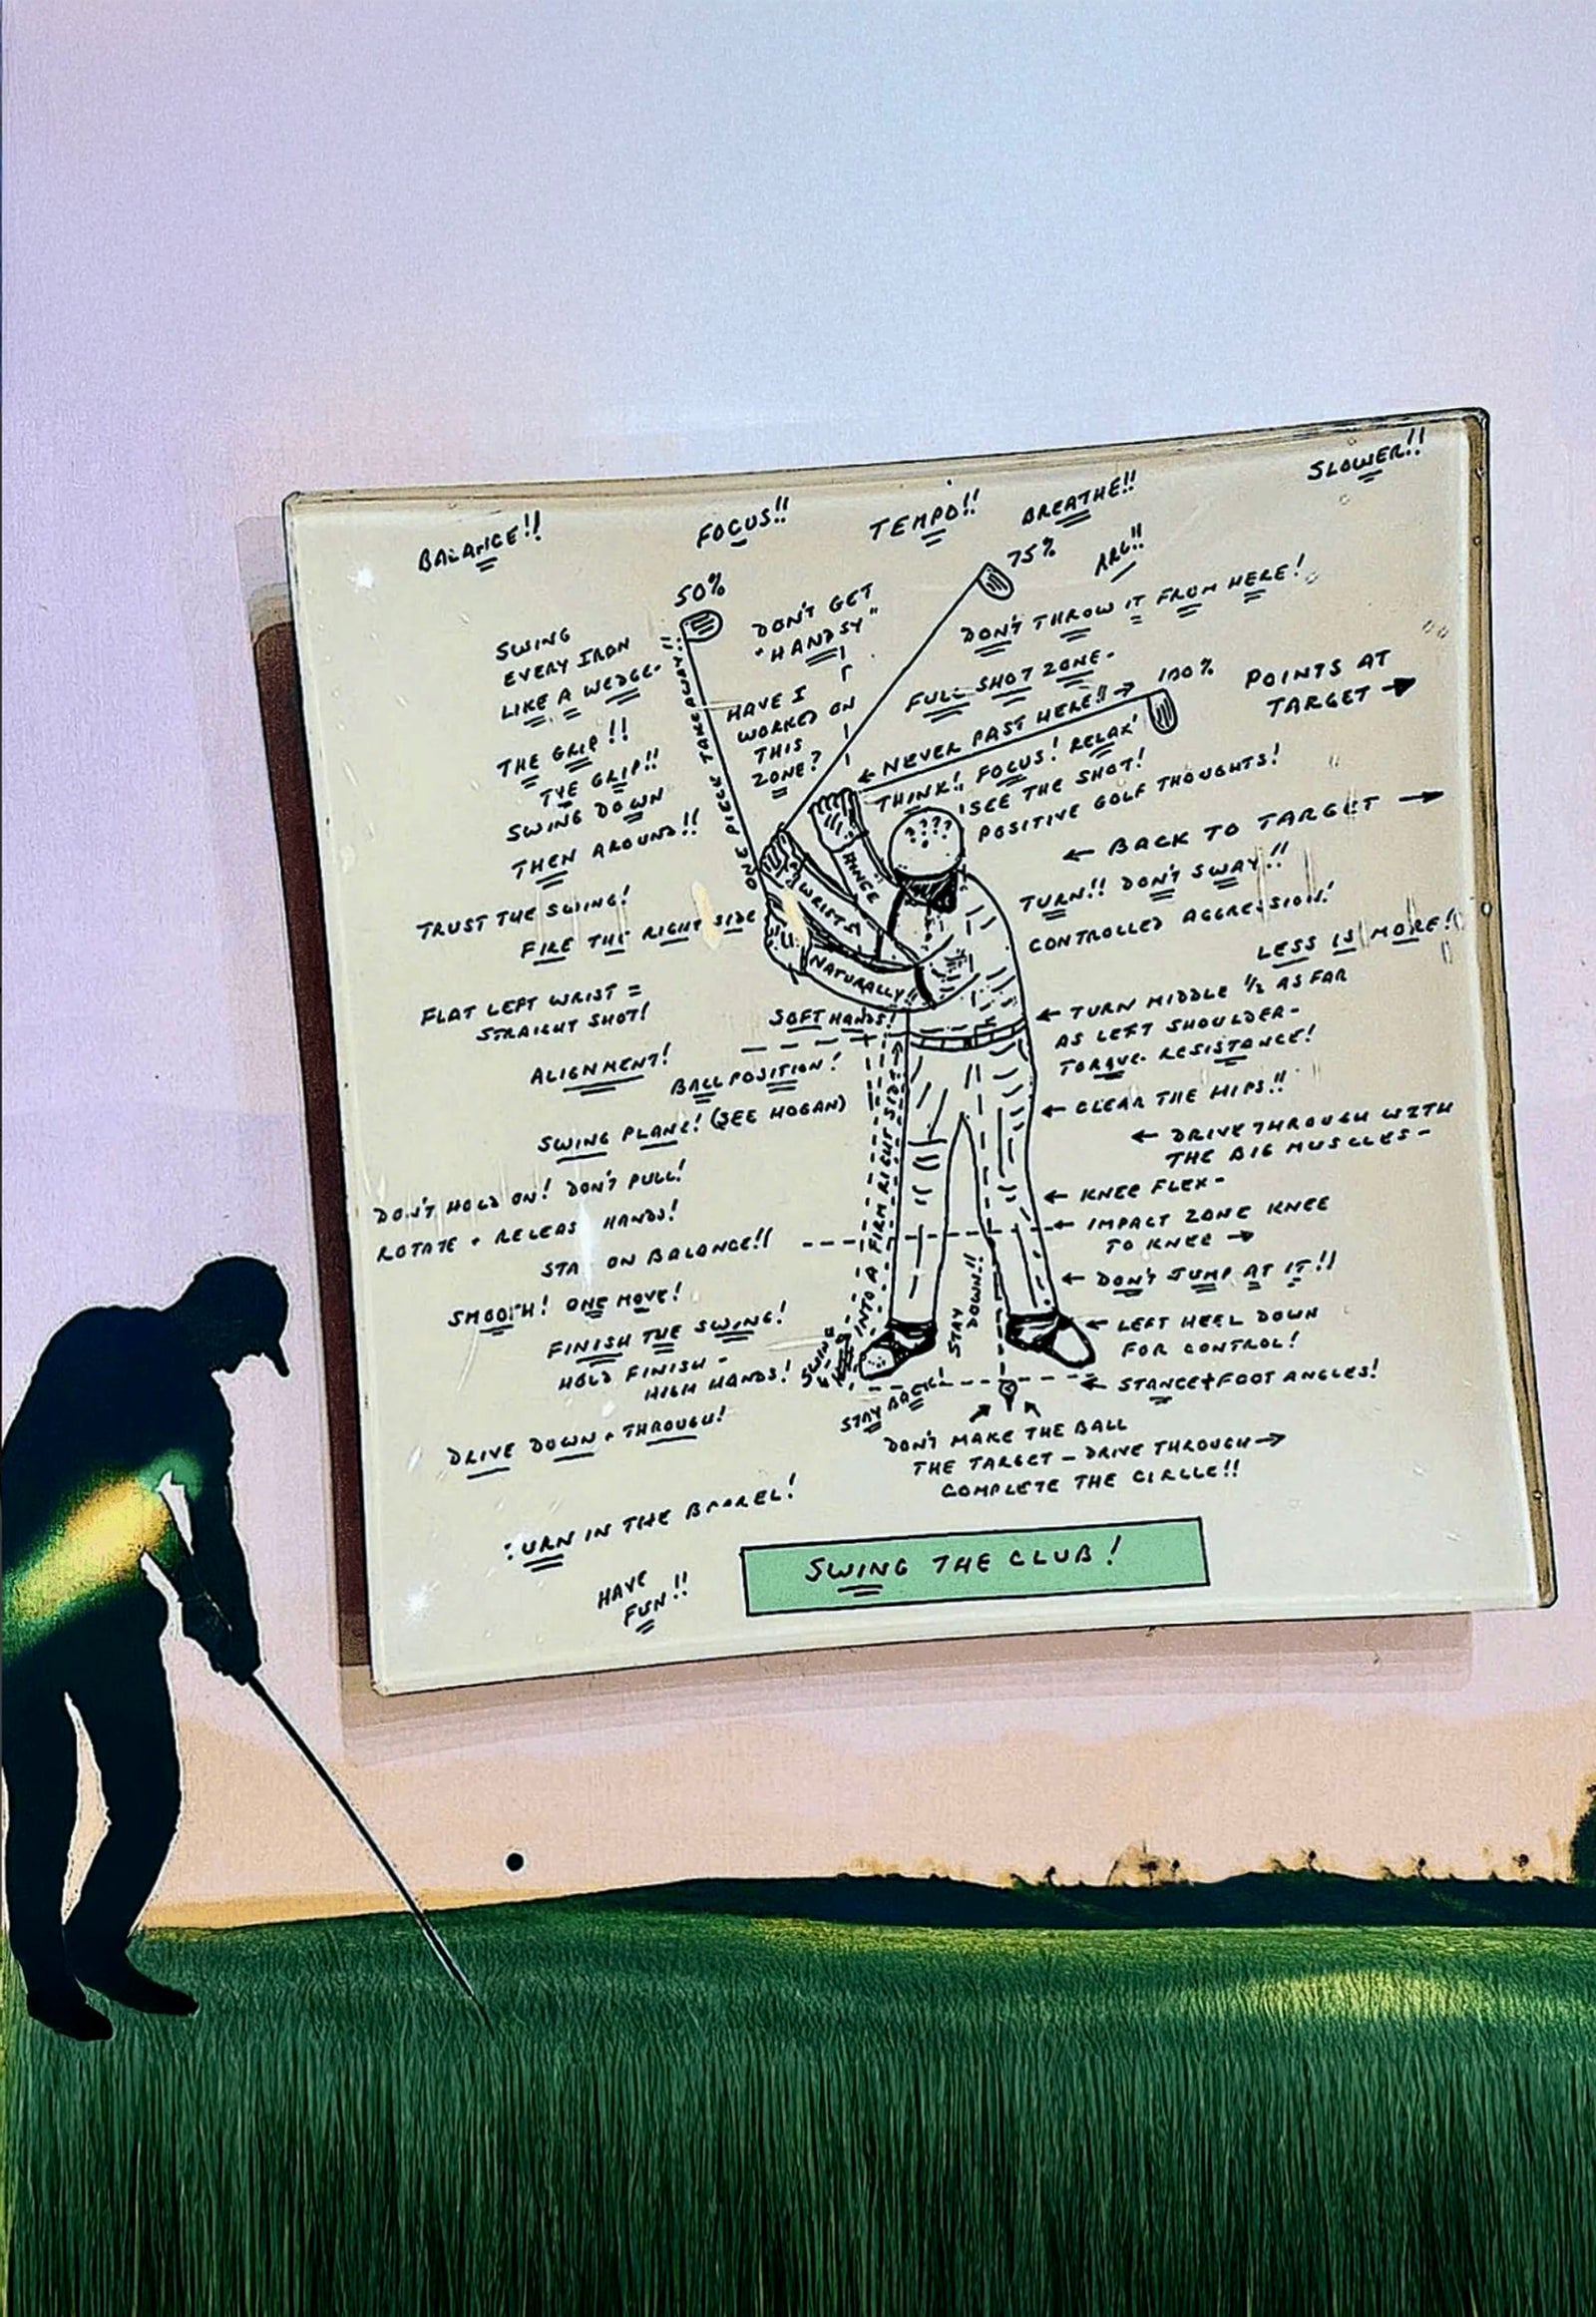 BALANCE!!
FOCUS!!
TEMPO!!
BREATHE!!
SLOWER!!
50%
75%
ARC!!
SWING
EVERY IRON
LIKE A WEDGE-
DON'T GET
"HANDSY"
DON'T THROW IT FROM HERE!
FULL SHOT ZONE-
100%
POINTS AT
TARGET
ONE PIECE TAKEAWAY!!
HAVE I
WORKED ON
THIS
ZONE?
NEVER PAST HERE!!
THE GRIP!!
THE GRIP!!
SWING DOWN
THEN AROUND!!
THINK!! FOCUS! RELAX!
SEE THE SHOT!
POSITIVE GOLF THOUGHTS!
????
BACK TO TARGET
TURN!! DON'T SWAY!!
CONTROLLED AGGRESSION!
LESS IS MORE!
HINGE
WRISTS
NATURALLY!!
TRUST THE SWING!
FIRE THE RIGHT SIDE
FLAT LEFT WRIST =
STRAIGHT SHOT!
SOFT HANDS!
ALIGNMENT!
BALL POSITION!
SWING PLANE! (SEE HOGAN)
TURN MIDDLE 1/2 AS FAR
AS LEFT SHOULDER-
TORQUE- RESISTANCE!
CLEAR THE HIPS!!
DRIVE THROUGH WITH
THE BIG MUSCLES-
DON'T HOLD ON! DON'T PULL!
ROTATE + RELEAS HANDS!
STA ON BALANCE!!
SMOOTH! ONE MOVE!
FINISH THE SWING!
HOLD FINISH-
HIGH HANDS!
DRIVE DOWN + THROUGH!
KNEE FLEX-
IMPACT ZONE KNEE
TO KNEE
DON'T JUMP AT IT!!
LEFT HEEL DOWN
FOR CONTROL!
STANCE + FOOT ANGLES!
SWING
INTO A FIRM RIGHT SIDE
STAY
DOWN!!
STAY BACK!
DON'T MAKE THE BALL
THE TARGET - DRIVE THROUGH
COMPLETE THE CIRCLE!!
TURN IN THE BARREL!
HAVE
FUN!!
SWING THE CLUB!